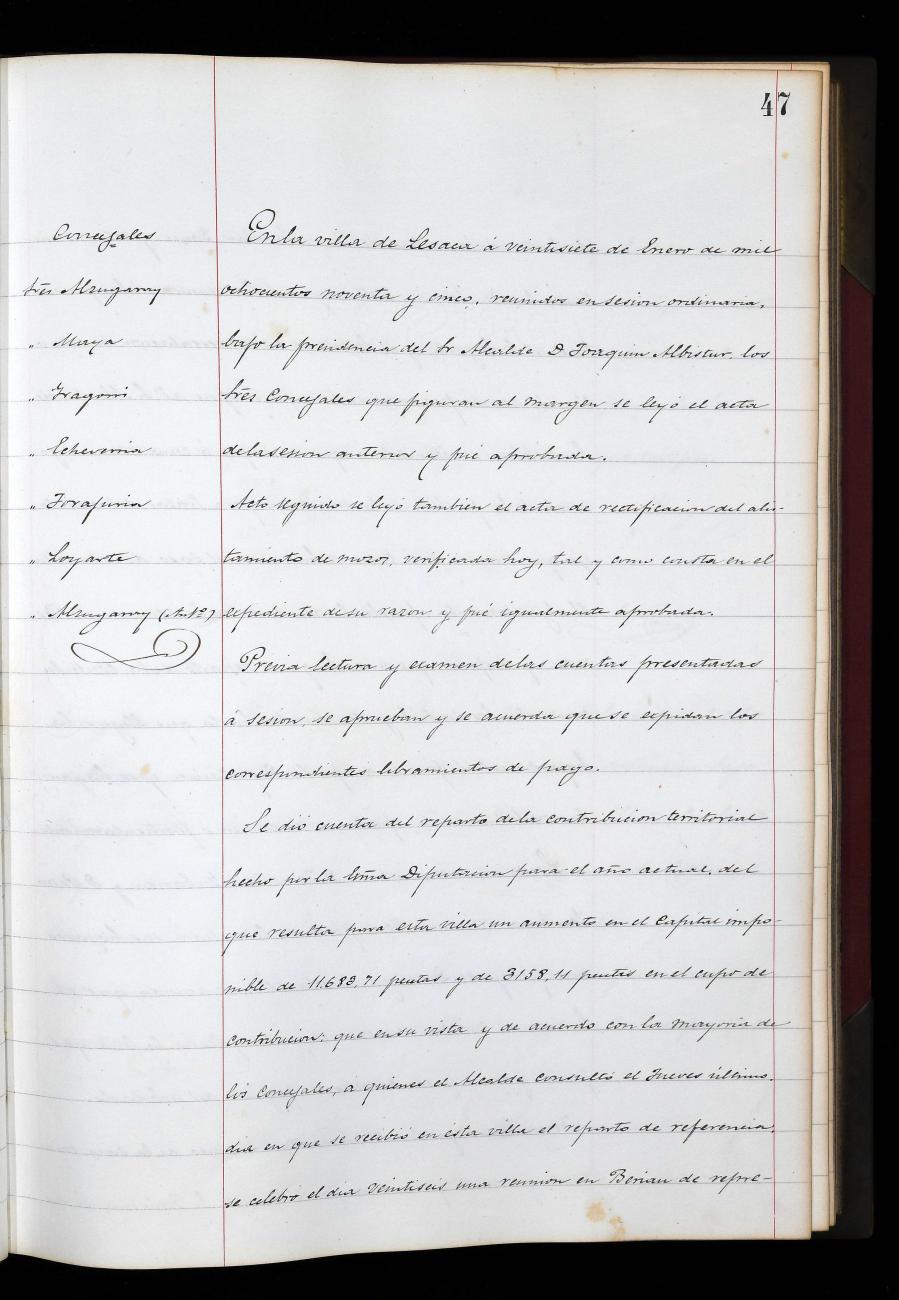 47
Concejales
Sres Alzugaray
" Maya
" Fragorri
" Echeverria
" Torajuria
" Loyarte
" Alzugaray (Antº)
En la villa de Lesaca á veintisiete de Enero de mil
ochocientos noventa y cinco, reunidos en sesion ordinaria,
bajo la presidencia del Sr Alcalde D Joaquin Albistur, los
Sres Concejales que figuran al margen se leyó el acta
de la sesion anterior y fué aprobada.
Acto seguido se leyó tambien el acta de rectificacion del alis-
tamiento de mozos, verificada hoy, tal y como consta en el
espediente de su razon y fué igualmente aprobada.
Previa lectura y examen de las cuentas presentadas
á sesion, se aprueban y se acuerda que se espidan los
correspondientes libramientos de pago.
Se dió cuenta del reparto de la contribucion territorial
hecho por la Diputacion para el año actual, del
que resulta para esta villa un aumento en el Capital impo-
nible de 11.683,71 pesetas y de 3158,11 pesetas en el cupo de
contribucion; que en su vista y de acuerdo con la mayoria de
los Concejales, a quienes el Alcalde consultó el Jueves último,
dia en que se recibió en esta villa el reparto de referencia,
se celebró el dia veintiseis una reunion en Berian de repre-